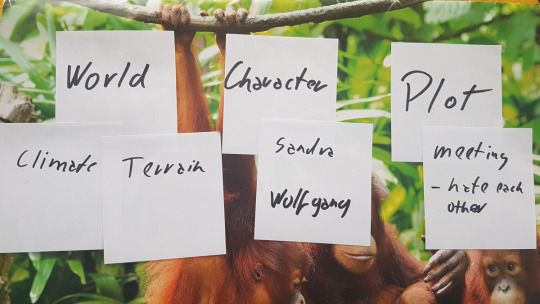 World
Character
Plot
Climate
Terrain
Sandra
Wolfgang
meeting
- hate each
other